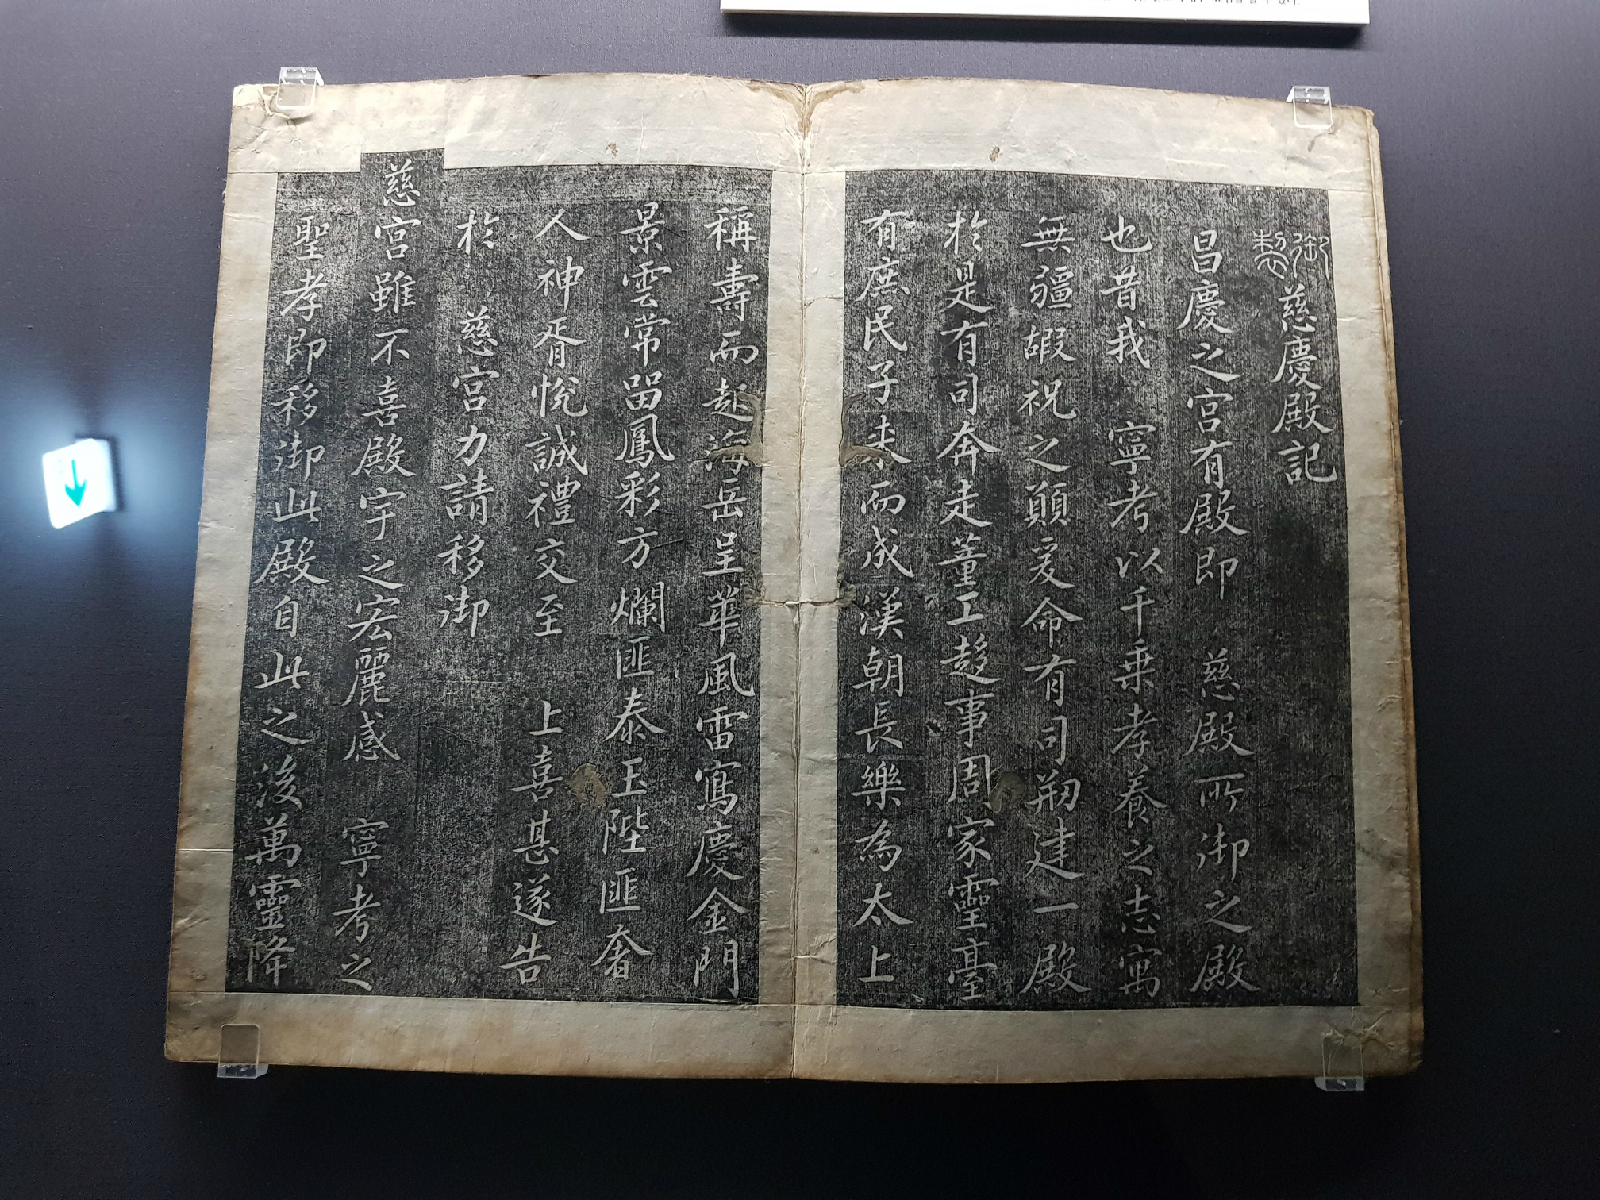 御製慈慶殿記
昌慶之宮有殿即 慈殿所御之殿
也昔我 寧考以千乘孝養之志寓
無疆嘏祝之願爰命有司刱建一殿
於是有司奔走董工趍事周家靈臺
有庶民子來而成漢朝長樂為太上
稱壽而起海岳呈華風雷寫慶金門
景雲常留鳳彩方爛匪泰玉陛匪奢
人神胥悅誠禮交至 上喜甚遂告
於 慈宮力請移御
慈宮雖不喜殿宇之宏麗感 寧考之
聖孝即移御此殿自此之後萬靈降